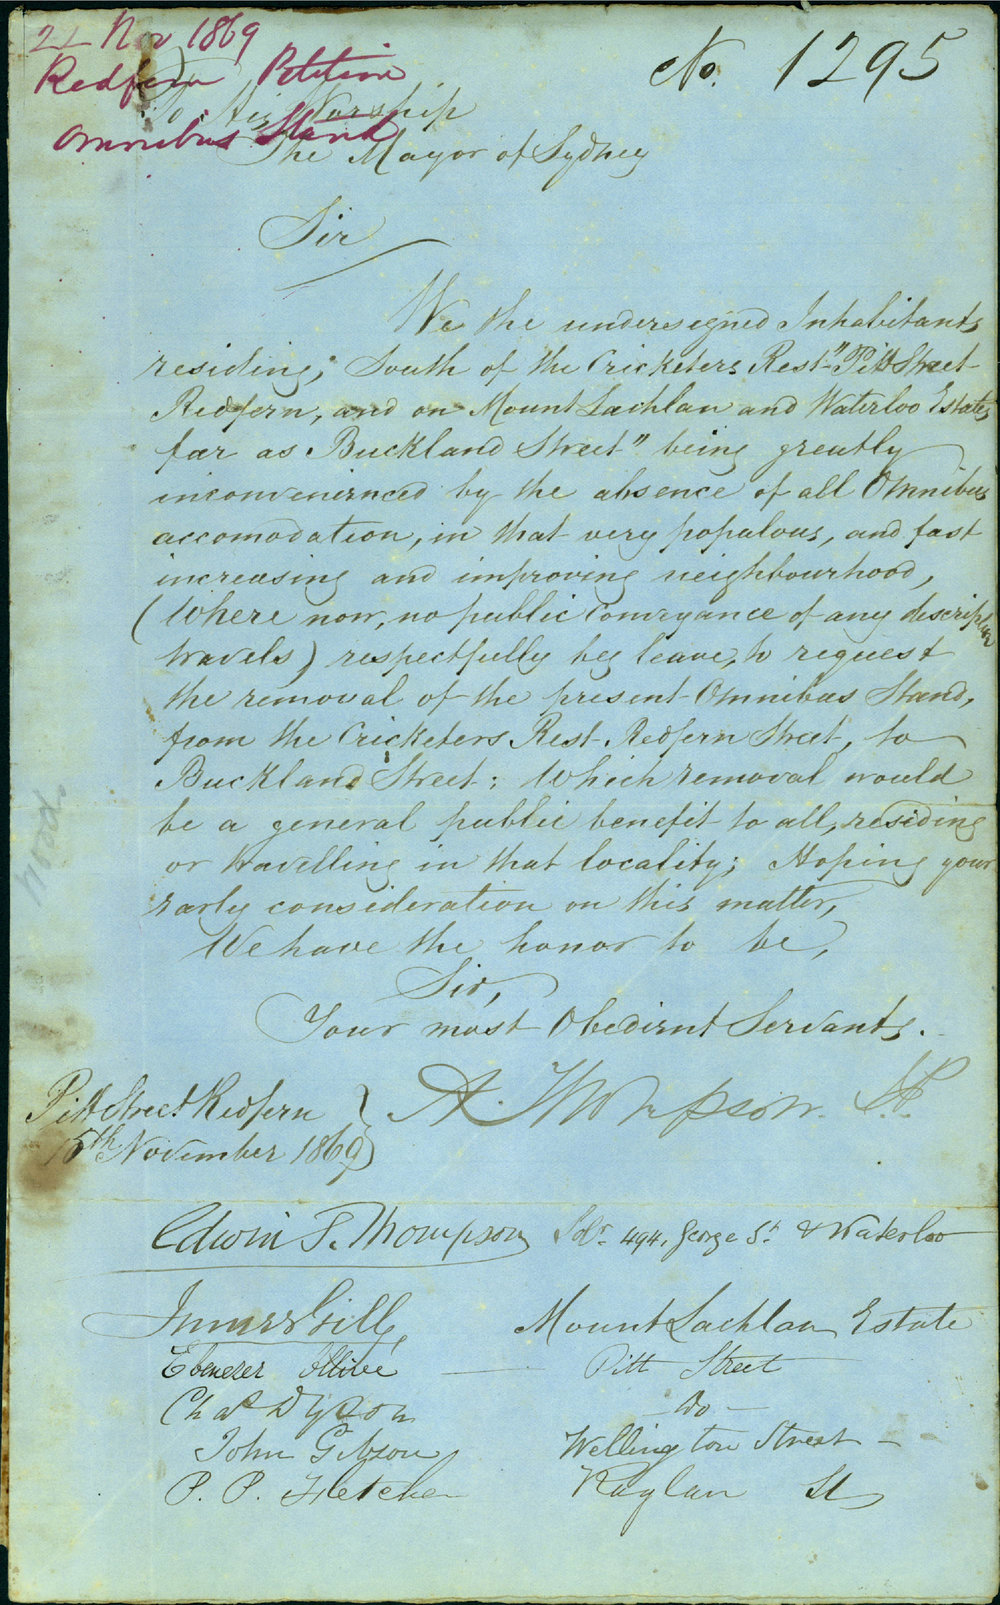 22 Nov 1869
Redfern Petition
Omnibus Stand
No. 1295
To His Worship
The Mayor of Sydney
Sir
We the undersigned Inhabitants
residing, "South of the Cricketers Rest" Pitt Street
Redfern, and on Mount Lachlan and Waterloo Estates
far as Buckland Street" being greatly
inconvenienced by the absence of all Omnibus
accomodation, in that very populous, and fast
increasing and improving neighbourhood,
(Where now, no public Conveyance of any description
travels) respectfully beg leave, to request
the removal of the present Omnibus Stand,
from the Cricketers Rest Redfern Street, to
Buckland Street; Which removal would
be a general public benefit to all, residing
or travelling in that locality; Hoping your
early consideration on this matter,
We have the honor to be,
Sir,
Your most Obedient Servants.
Pitt Street Redfern
15th November 1869
A. Thompson. J.P.
Edwin F. Thompson Solr. 494, George St. & Waterloo
James Gill, Mount Lachlan Estate
Ebenezer Ollive — Pitt Street
Chas Dyson — Do —
John Gibson Wellington Street —
P. P. Fletcher Raglan St
Wood